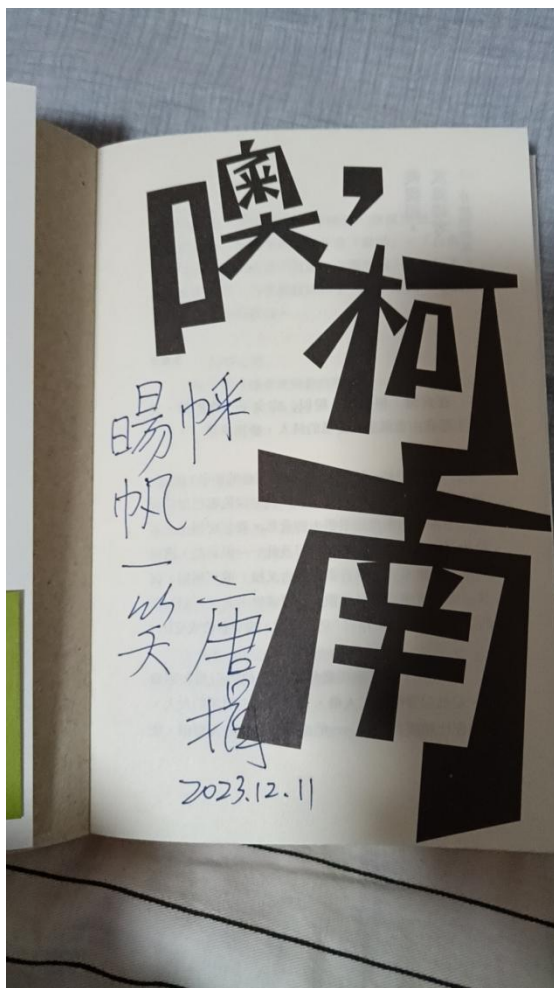 噢,柯南
暘帆一笑
唐捐
2023.12.11